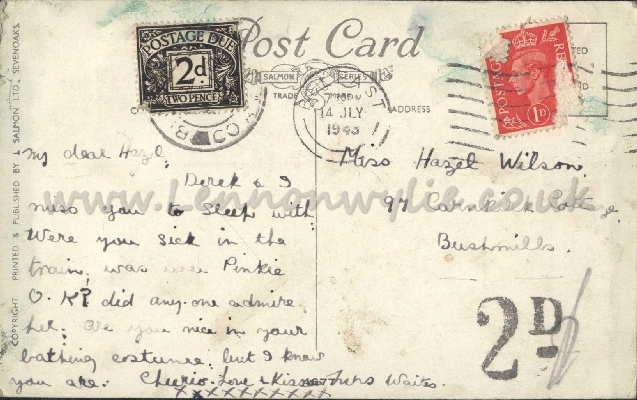 Post Card
SALMON SERIES
TRADE
ADDRESS
COPYRIGHT PRINTED & PUBLISHED BY J. SALMON LTD., SEVENOAKS.
POSTAGE DUE
2d
TWO PENCE
BELFAST
14 JLY
1943
POSTAGE
RE
1D
My dear Hazel,
Derek & I
miss you to sleep with
Were you sick in the
train, was wee Pinkie
O.K? did any-one admire
her. Are you nice in your
bathing costume, but I know
you are. Cheerio. Love & Kisses Mrs Waites.
xxxxxxxxxx
Miss Hazel Wilson
97 Cottage,
Bushmills.
2D
www.Lennonwylie.co.uk